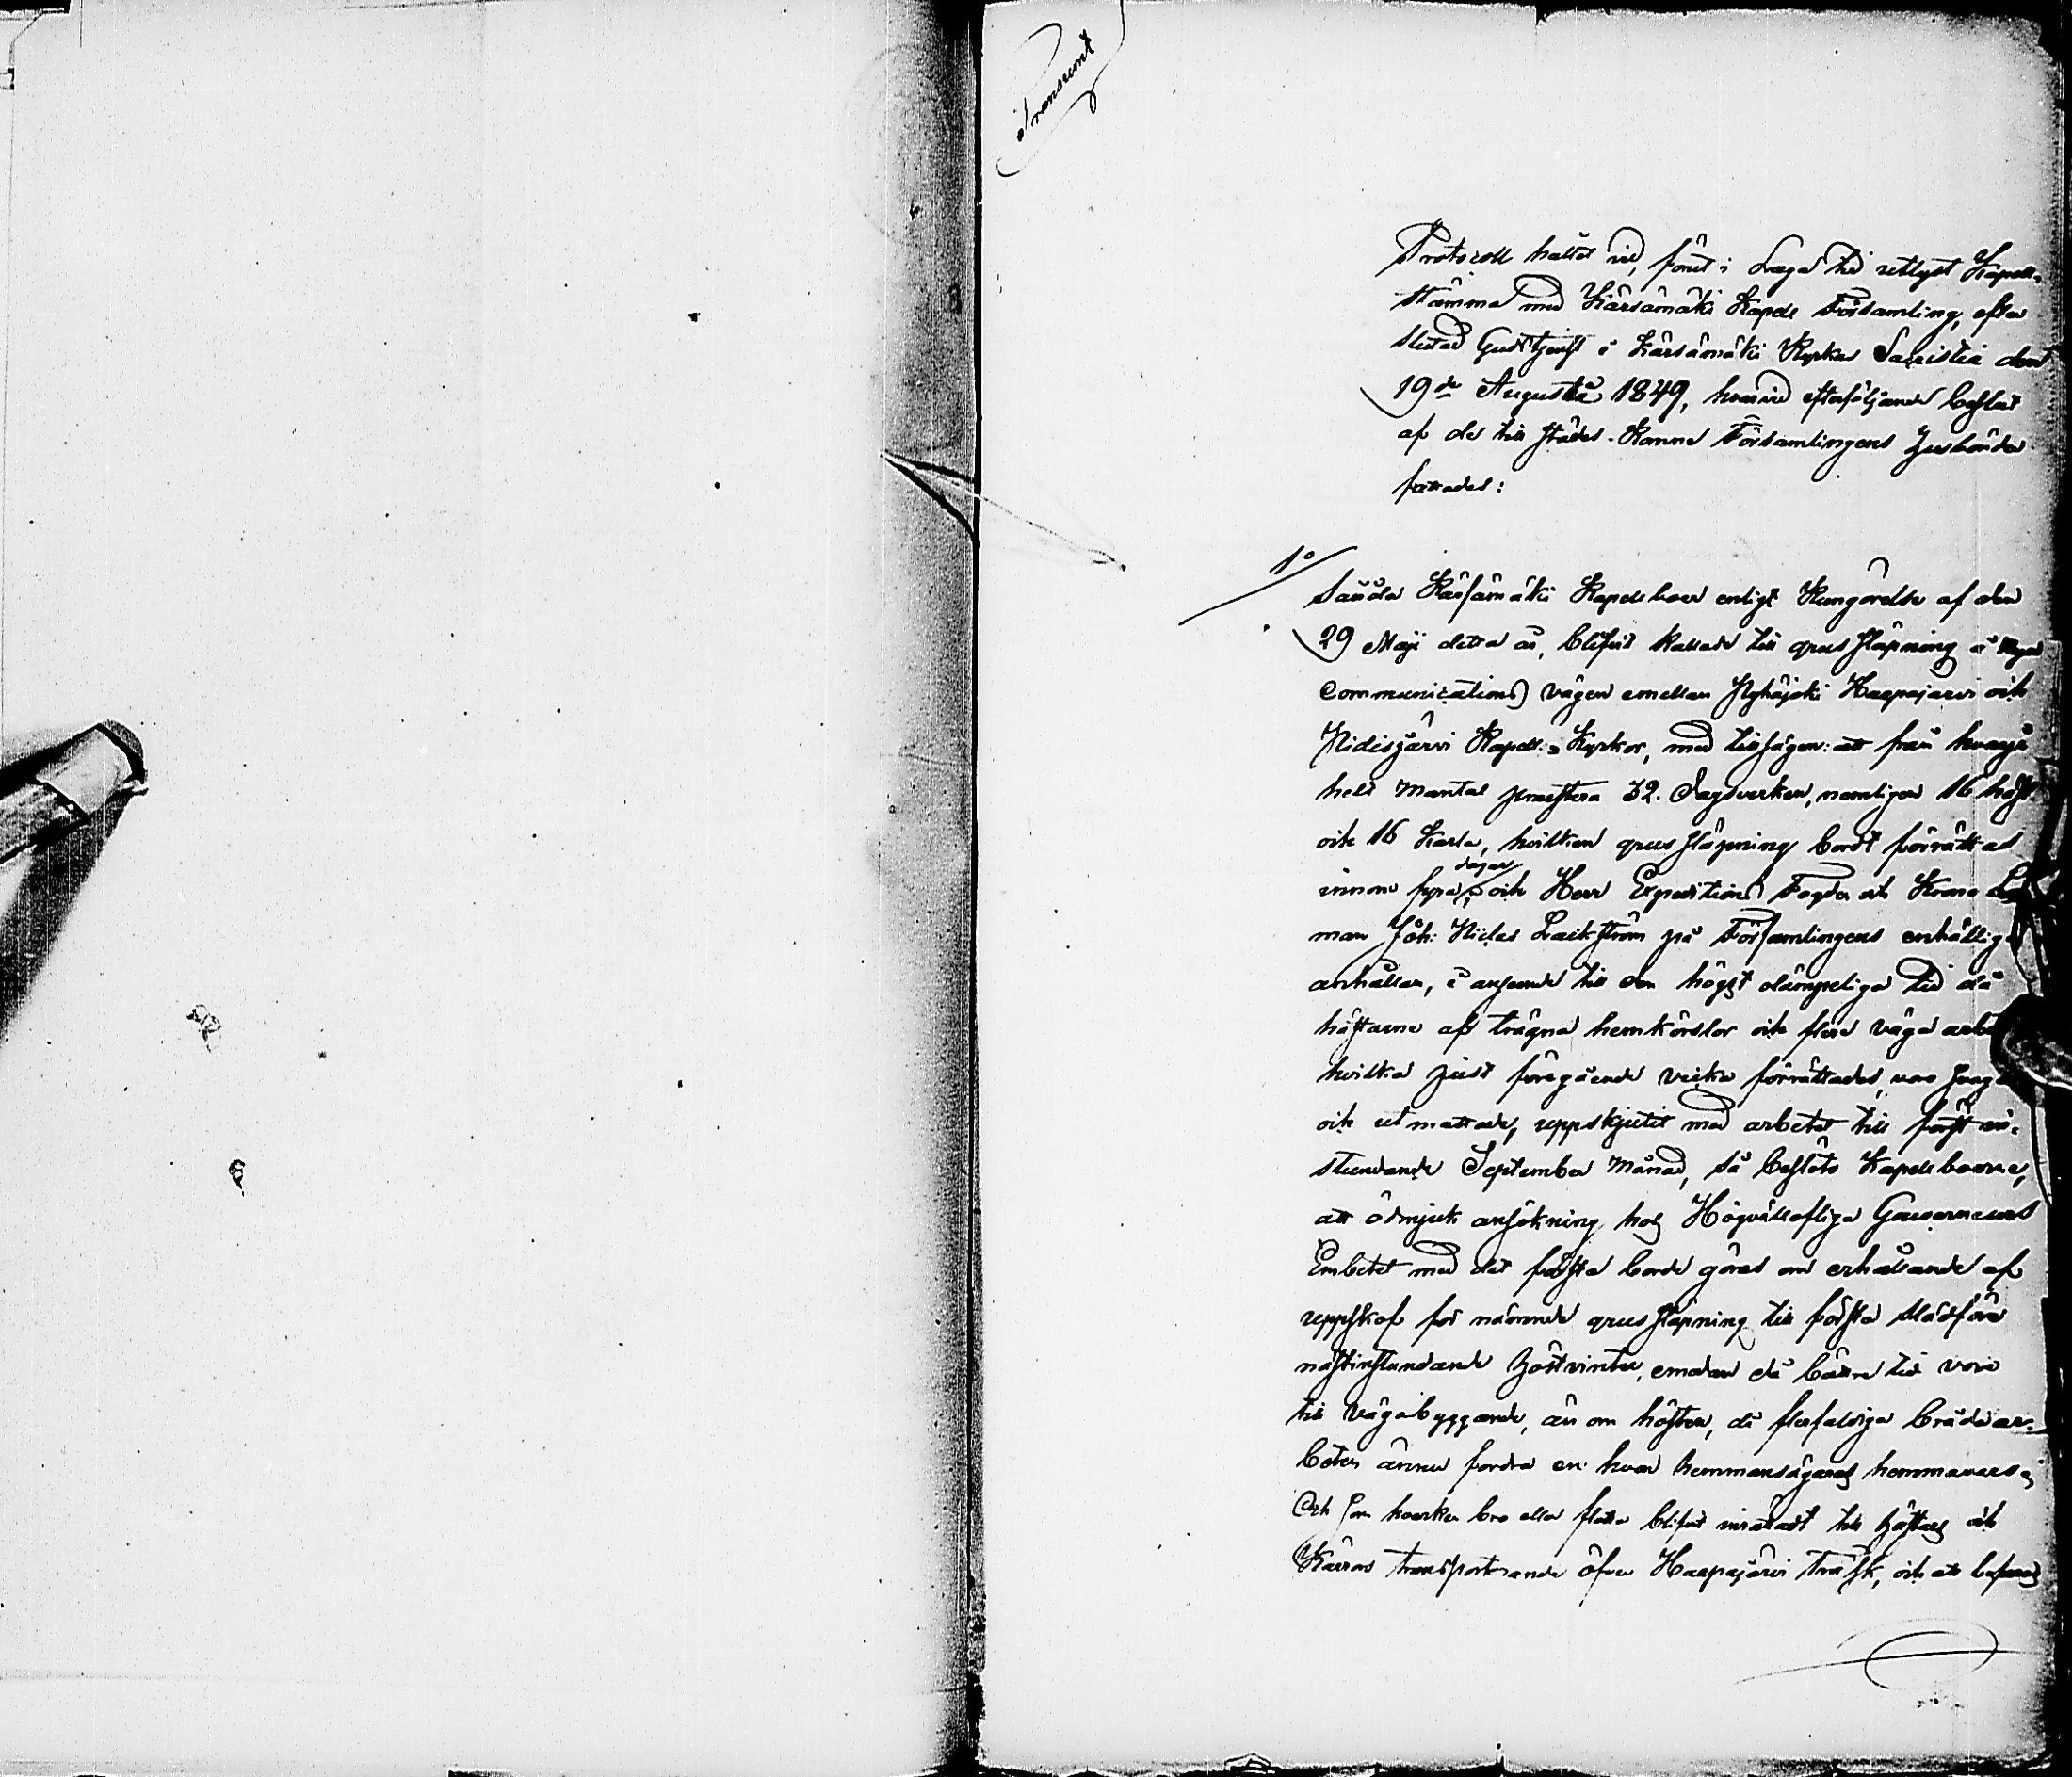 Transumt
Protocoll hållet vid, förut i Laga tid utlyst Kapell-
stämma med Kärsämäki Kapell Församling, efter
slutad Gudstjenst i Kärsämäki Kyrkas Sacristia den
19de Augusti 1849, hvarvid efterföljande beslut
af de till städes-komne Församlingens Husbönder
fattades:
1o
Sauda Kärsämäki Kapellboer enligt Kungörelse af den
29 Maji detta år, blifvit kallade till grus släpning å nya
communications vägen emellan Pyhäjoki Haapajärvi och
Pidisjärvi Kapell-Kyrkor, med tillsägen: att från hvarje
helt Mantal præstera 32. Dagsverken, nemligen 16 häst-
och 16 Karla, hvilken grus släpning bordt förrättas
innom fyra dagar, och Herr Expeditions Fogden och Krono
man Joh: Niclas Lackström på Församlingens enhälliga
anhållan, i anseende till den högst olämpeliga tid då
hästarne af trägna hemkörslor och flera väga
hvilka just föregående vecka förrättades, voro
och utmattade, uppskjutit med arbetet till först in-
stundande September Månad, så beslöto Kapellboerne,
att ödmjuk ansökning hos Högvällofliga Gouverneurs
Embetet med det första borde göras om erhållande af
uppskof för nämnde grussläpning till första slädföre
nästinstundande höstvinter, emedan då bättre tid vore
till vägabyggande, än om hösten, då flerfaldiga brådar-
beten ännu fordra en hvar hemmansägares hemmavaro,
Och som hvarken bro eller flotta blifvit inrättadt till hästars och
Kärros transporterande öfver Haapajärvi träsk, och att befaras